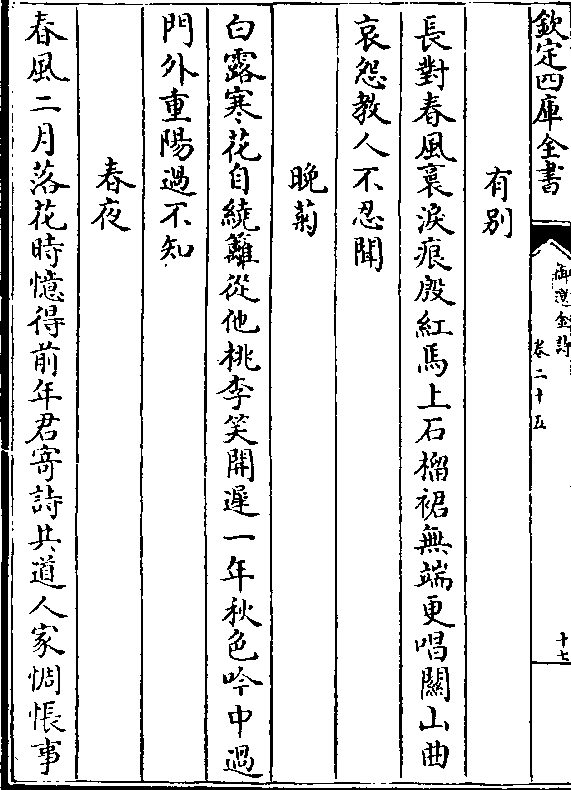 欽定四庫全書
御選金詩
卷二十五
十七
有别
長對春風裛淚痕殷紅馬上石榴裙無端更唱關山曲
哀怨教人不忍聞
晚菊
白露寒花自繞籬從他桃李笑開遲一年秋色吟中過
門外重陽過不知
春夜
春風二月落花時憶得前年君寄詩共道人家惆悵事